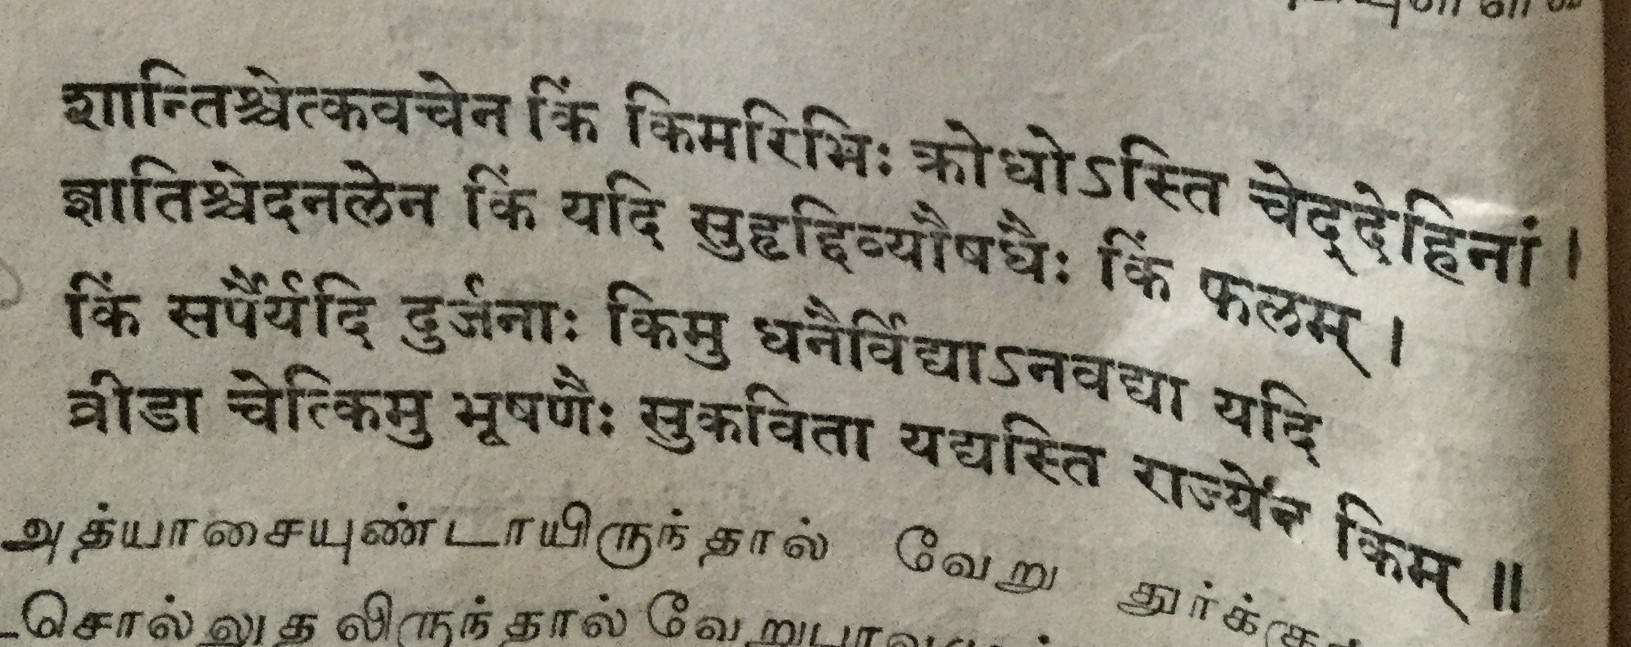 शान्तिश्चेत्कवचेन किं किमरिभिः क्रोधोऽस्ति चेद्देहिनां ।
ज्ञातिश्चेदनलेन किं यदि सुहृद्दिव्यौषधैः किं फलम् ।
किं सर्पैर्यदि दुर्जनाः किमु धनैर्विद्याऽनवद्या यदि
व्रीडा चेत्किमु भूषणैः सुकविता यद्यस्ति राज्येन किम् ॥
அத்யாசையுண்டாயிருந்தால் வேறு
சொல்லுதலிருந்தால்